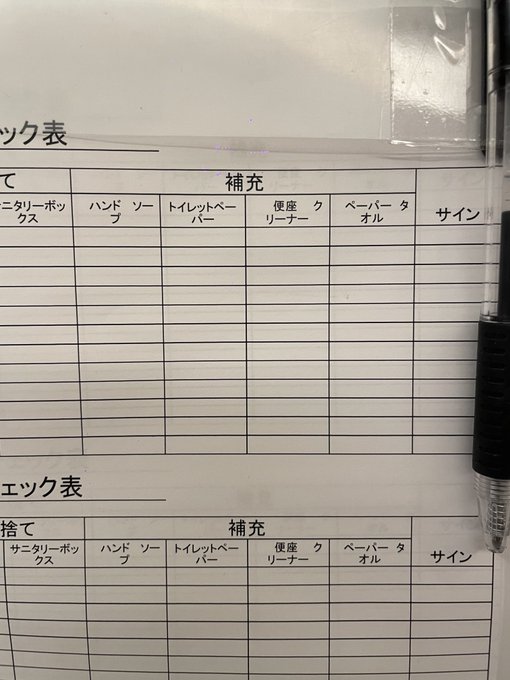 ック表
て 補充
ニタリーボッ ハンド ソー トイレットペー 便座 ク ペーパー タ サイン
クス プ パー リーナー オル
ェック表
捨て 補充
サニタリーボッ ハンド ソー トイレットペー 便座 ク ペーパー タ サイン
クス プ パー リーナー オル